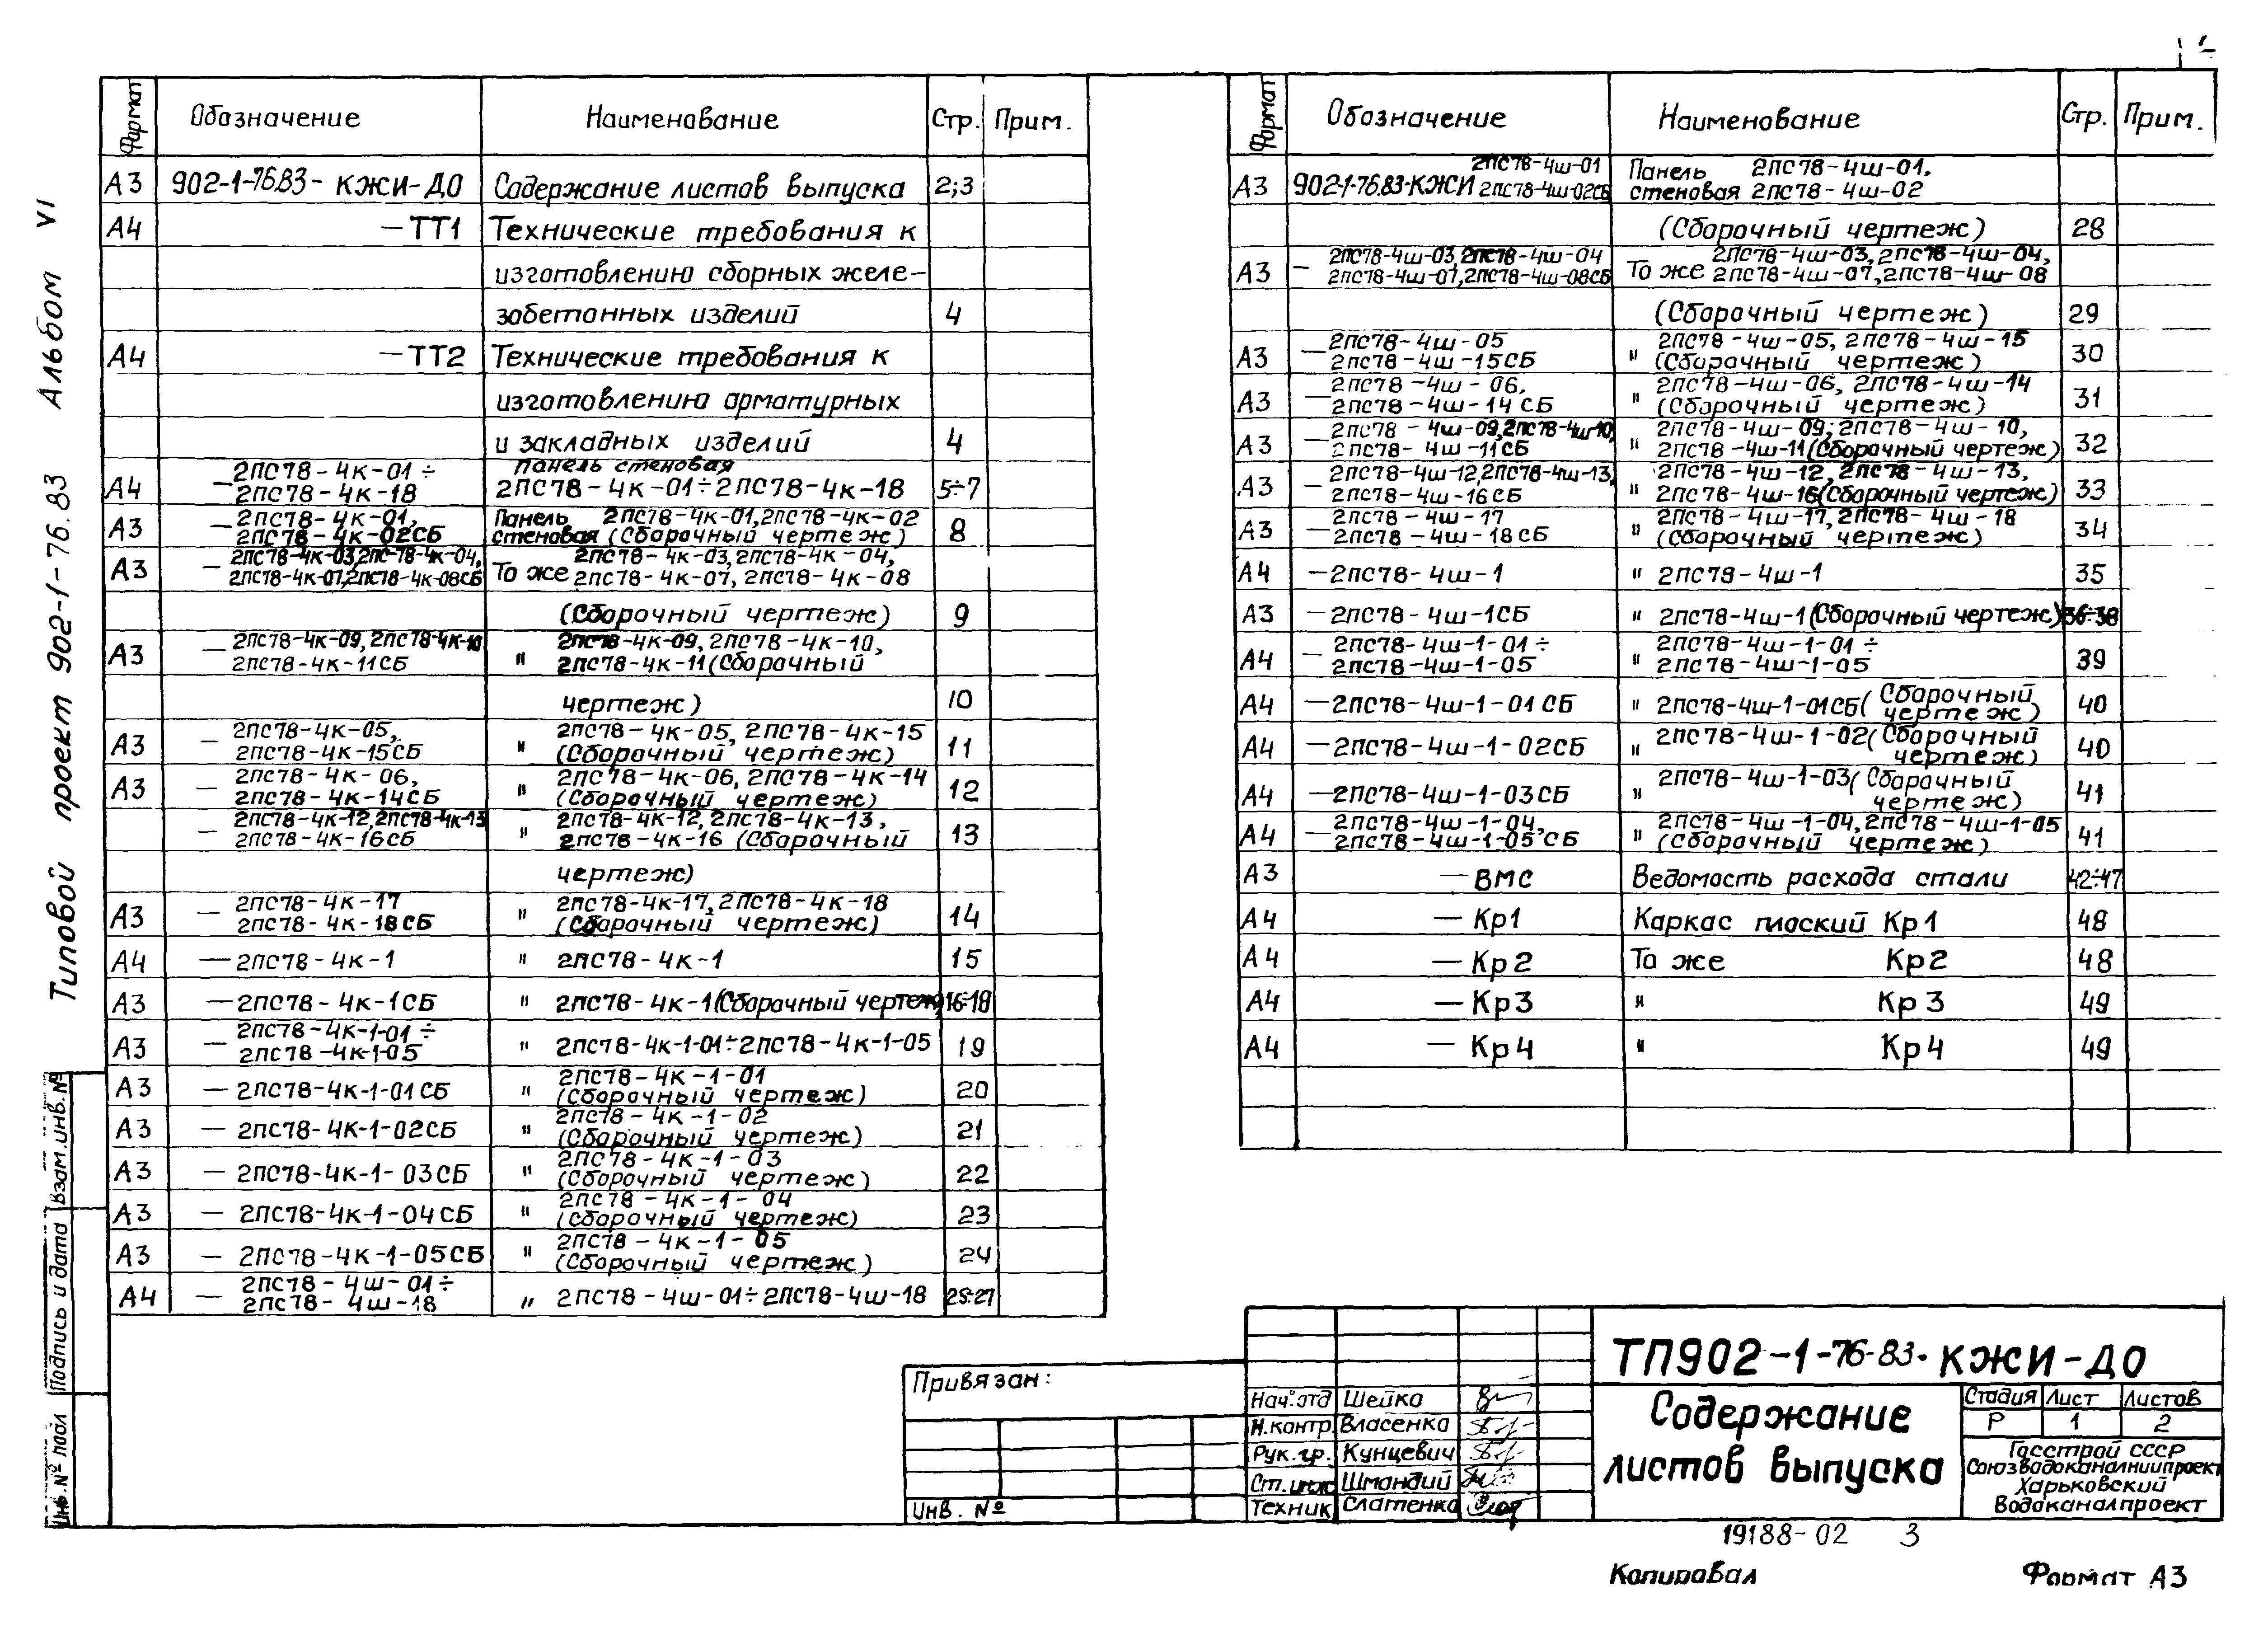 Типовой проект 902-1-76.83 Альбом VI
Формат Обозначение Наименование Стр. Прим.
А3 902-1-76.83-КЖИ-ДО Содержание листов выпуска 2;3
А4 -ТТ1 Технические требования к
изготовлению сборных желе-
зобетонных изделий 4
А4 -ТТ2 Технические требования к
изготовлению арматурных
и закладных изделий 4
А4 - 2ПС78-4к-01÷ Панель стеновая
2ПС78-4к-18 2ПС78-4к-01÷2ПС78-4к-18 5÷7
А3 - 2ПС78-4к-01, Панель 2ПС78-4к-01,2ПС78-4к-02
2ПС78-4к-02СБ стеновая (Сборочный чертеж) 8
А3 - 2ПС78-4к-03,2ПС-78-4к-04, То же 2ПС78-4к-03,2ПС78-4к-04,
2ПС78-4к-07,2ПС78-4к-08СБ 2ПС78-4к-07, 2ПС78-4к-08
(Сборочный чертеж) 9
А3 - 2ПС78-4к-09,2ПС78-4к-10 " 2ПС78-4к-09, 2ПС78-4к-10,
2ПС78-4к-11СБ 2ПС78-4к-11(Сборочный
чертеж) 10
А3 - 2ПС78-4к-05, 2ПС78-4к-05, 2ПС78-4к-15
2ПС78-4к-15СБ " (Сборочный чертеж) 11
А3 - 2ПС78-4к-06, 2ПС78-4к-06, 2ПС78-4к-14
2ПС78-4к-14СБ " (Сборочный чертеж) 12
- 2ПС78-4к-12,2ПС78-4к-13 2ПС78-4к-12, 2ПС78-4к-13,
2ПС78-4к-16СБ " 2ПС78-4к-16 (Сборочный 13
чертеж)
А3 - 2ПС78-4к-17 2ПС78-4к-17, 2ПС78-4к-18
2ПС78-4к-18СБ " (Сборочный чертеж) 14
А4 -2ПС78-4к-1 " 2ПС78-4к-1 15
А3 -2ПС78-4к-1СБ " 2ПС78-4к-1(Сборочный чертеж) 16÷18
А3 - 2ПС78-4к-1-01÷
2ПС78-4к-1-05 " 2ПС78-4к-1-01÷2ПС78-4к-1-05 19
А3 - 2ПС78-4к-1-01СБ " 2ПС78-4к-1-01
(Сборочный чертеж) 20
А3 - 2ПС78-4к-1-02СБ " 2ПС78-4к-1-02
(Сборочный чертеж) 21
А3 - 2ПС78-4к-1-03СБ " 2ПС78-4к-1-03
(Сборочный чертеж) 22
А3 - 2ПС78-4к-1-04СБ " 2ПС78-4к-1-04
(Сборочный чертеж) 23
А3 - 2ПС78-4к-1-05СБ " 2ПС78-4к-1-05
(Сборочный чертеж) 24
А4 - 2ПС78-4ш-01÷
2ПС78-4ш-18 " 2ПС78-4ш-01÷2ПС78-4ш-18 25÷27
Формат Обозначение Наименование Стр. Прим.
2ПС78-4ш-01 Панель 2ПС78-4ш-01,
А3 902-1-76.83-КЖИ 2ПС78-4ш-02СБ стеновая 2ПС78-4ш-02
(Сборочный чертеж) 28
А3 - 2ПС78-4ш-03,2ПС78-4ш-04 2ПС78-4ш-03,2ПС78-4ш-04,
2ПС78-4ш-07,2ПС78-4ш-08СБ То же 2ПС78-4ш-07,2ПС78-4ш-08
(Сборочный чертеж) 29
А3 - 2ПС78-4ш-05 2ПС78-4ш-05, 2ПС78-4ш-15
2ПС78-4ш-15СБ " (Сборочный чертеж) 30
А3 - 2ПС78-4ш-06, 2ПС78-4ш-06, 2ПС78-4ш-14
2ПС78-4ш-14СБ " (Сборочный чертеж) 31
А3 - 2ПС78-4ш-09,2ПС78-4ш-10, 2ПС78-4ш-09, 2ПС78-4ш-10,
2ПС78-4ш-11СБ " 2ПС78-4ш-11(Сборочный чертеж) 32
А3 - 2ПС78-4ш-12,2ПС78-4ш-13, 2ПС78-4ш-12, 2ПС78-4ш-13,
2ПС78-4ш-16СБ " 2ПС78-4ш-16(Сборочный чертеж) 33
А3 - 2ПС78-4ш-17 2ПС78-4ш-17, 2ПС78-4ш-18
2ПС78-4ш-18СБ " (Сборочный чертеж) 34
А4 -2ПС78-4ш-1 " 2ПС78-4ш-1 35
А3 -2ПС78-4ш-1СБ " 2ПС78-4ш-1(Сборочный чертеж) 36÷38
А4 - 2ПС78-4ш-1-01÷ 2ПС78-4ш-1-01÷
2ПС78-4ш-1-05 " 2ПС78-4ш-1-05 39
А4 -2ПС78-4ш-1-01СБ " 2ПС78-4ш-1-01СБ(Сборочный
чертеж) 40
А4 -2ПС78-4ш-1-02СБ " 2ПС78-4ш-1-02(Сборочный
чертеж) 40
А4 -2ПС78-4ш-1-03СБ " 2ПС78-4ш-1-03(Сборочный
чертеж) 41
А4 - 2ПС78-4ш-1-04, 2ПС78-4ш-1-04, 2ПС78-4ш-1-05
2ПС78-4ш-1-05СБ " (Сборочный чертеж) 41
А3 -ВМС Ведомость расхода стали 42÷47
А4 -Кр1 Каркас плоский Кр1 48
А4 -Кр2 То же Кр2 48
А4 -Кр3 " Кр3 49
А4 -Кр4 " Кр4 49
Инв. № подл Подпись и дата Взам.инв.№
Привязан:
Инв. №
Нач.отд Шейко
Н.контр. Власенко
Рук.гр. Кунцевич
Ст.инж Шмандий
Техник Слатенко
ТП902-1-76-83. КЖИ-ДО
Содержание
листов выпуска
Стадия Лист Листов
Р 1 2
Госстрой СССР
Союзводоканалниипроект
Харьковский
Водоканалпроект
19188-02 3
Копировал Формат А3